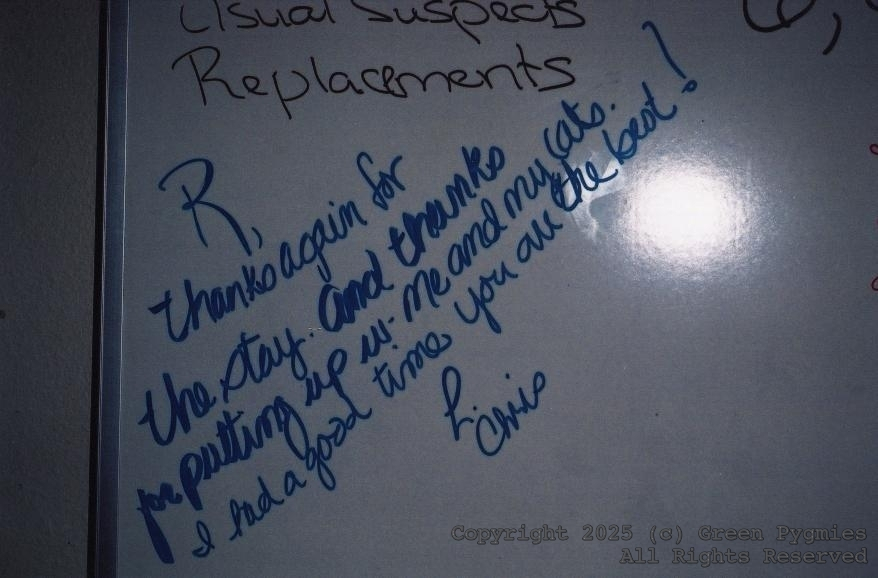 Usual Suspects
Replacements
R,
thanks again for
the stay. and thanks
for putting up w. me and my cats.
I had a good time you are the best!
L. Chris
Copyright 2025 (c) Green Pygmies
All Rights Reserved